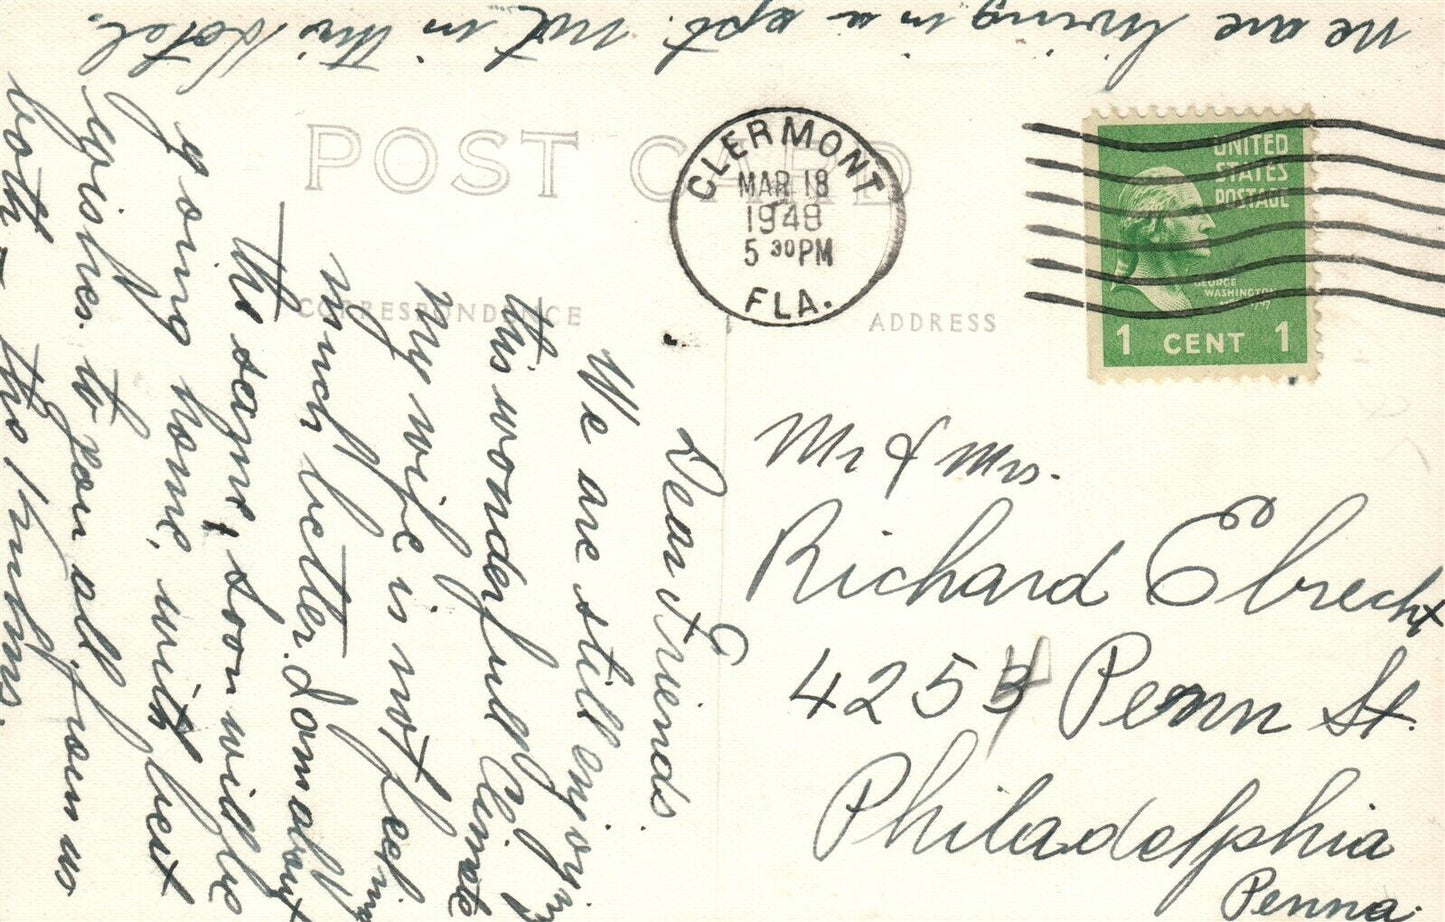 we are living in a apt. not in this Hotel.
POST CARD
CLERMONT
MAR 18
1948
5 30 PM
FLA.
UNITED
STATES
POSTAGE
GEORGE
WASHINGTON
1 CENT 1
CORRESPONDENCE
ADDRESS
Dear Friends
We are still enjoying
this wonderfull Climate
My wife is not feeling
much better. I am about
the same, soon will be
going home, with best
wishes to you all from us
both - the
Mr & Mrs.
Richard Ebrecht
4254 Penn St.
Philadelphia
Penna.